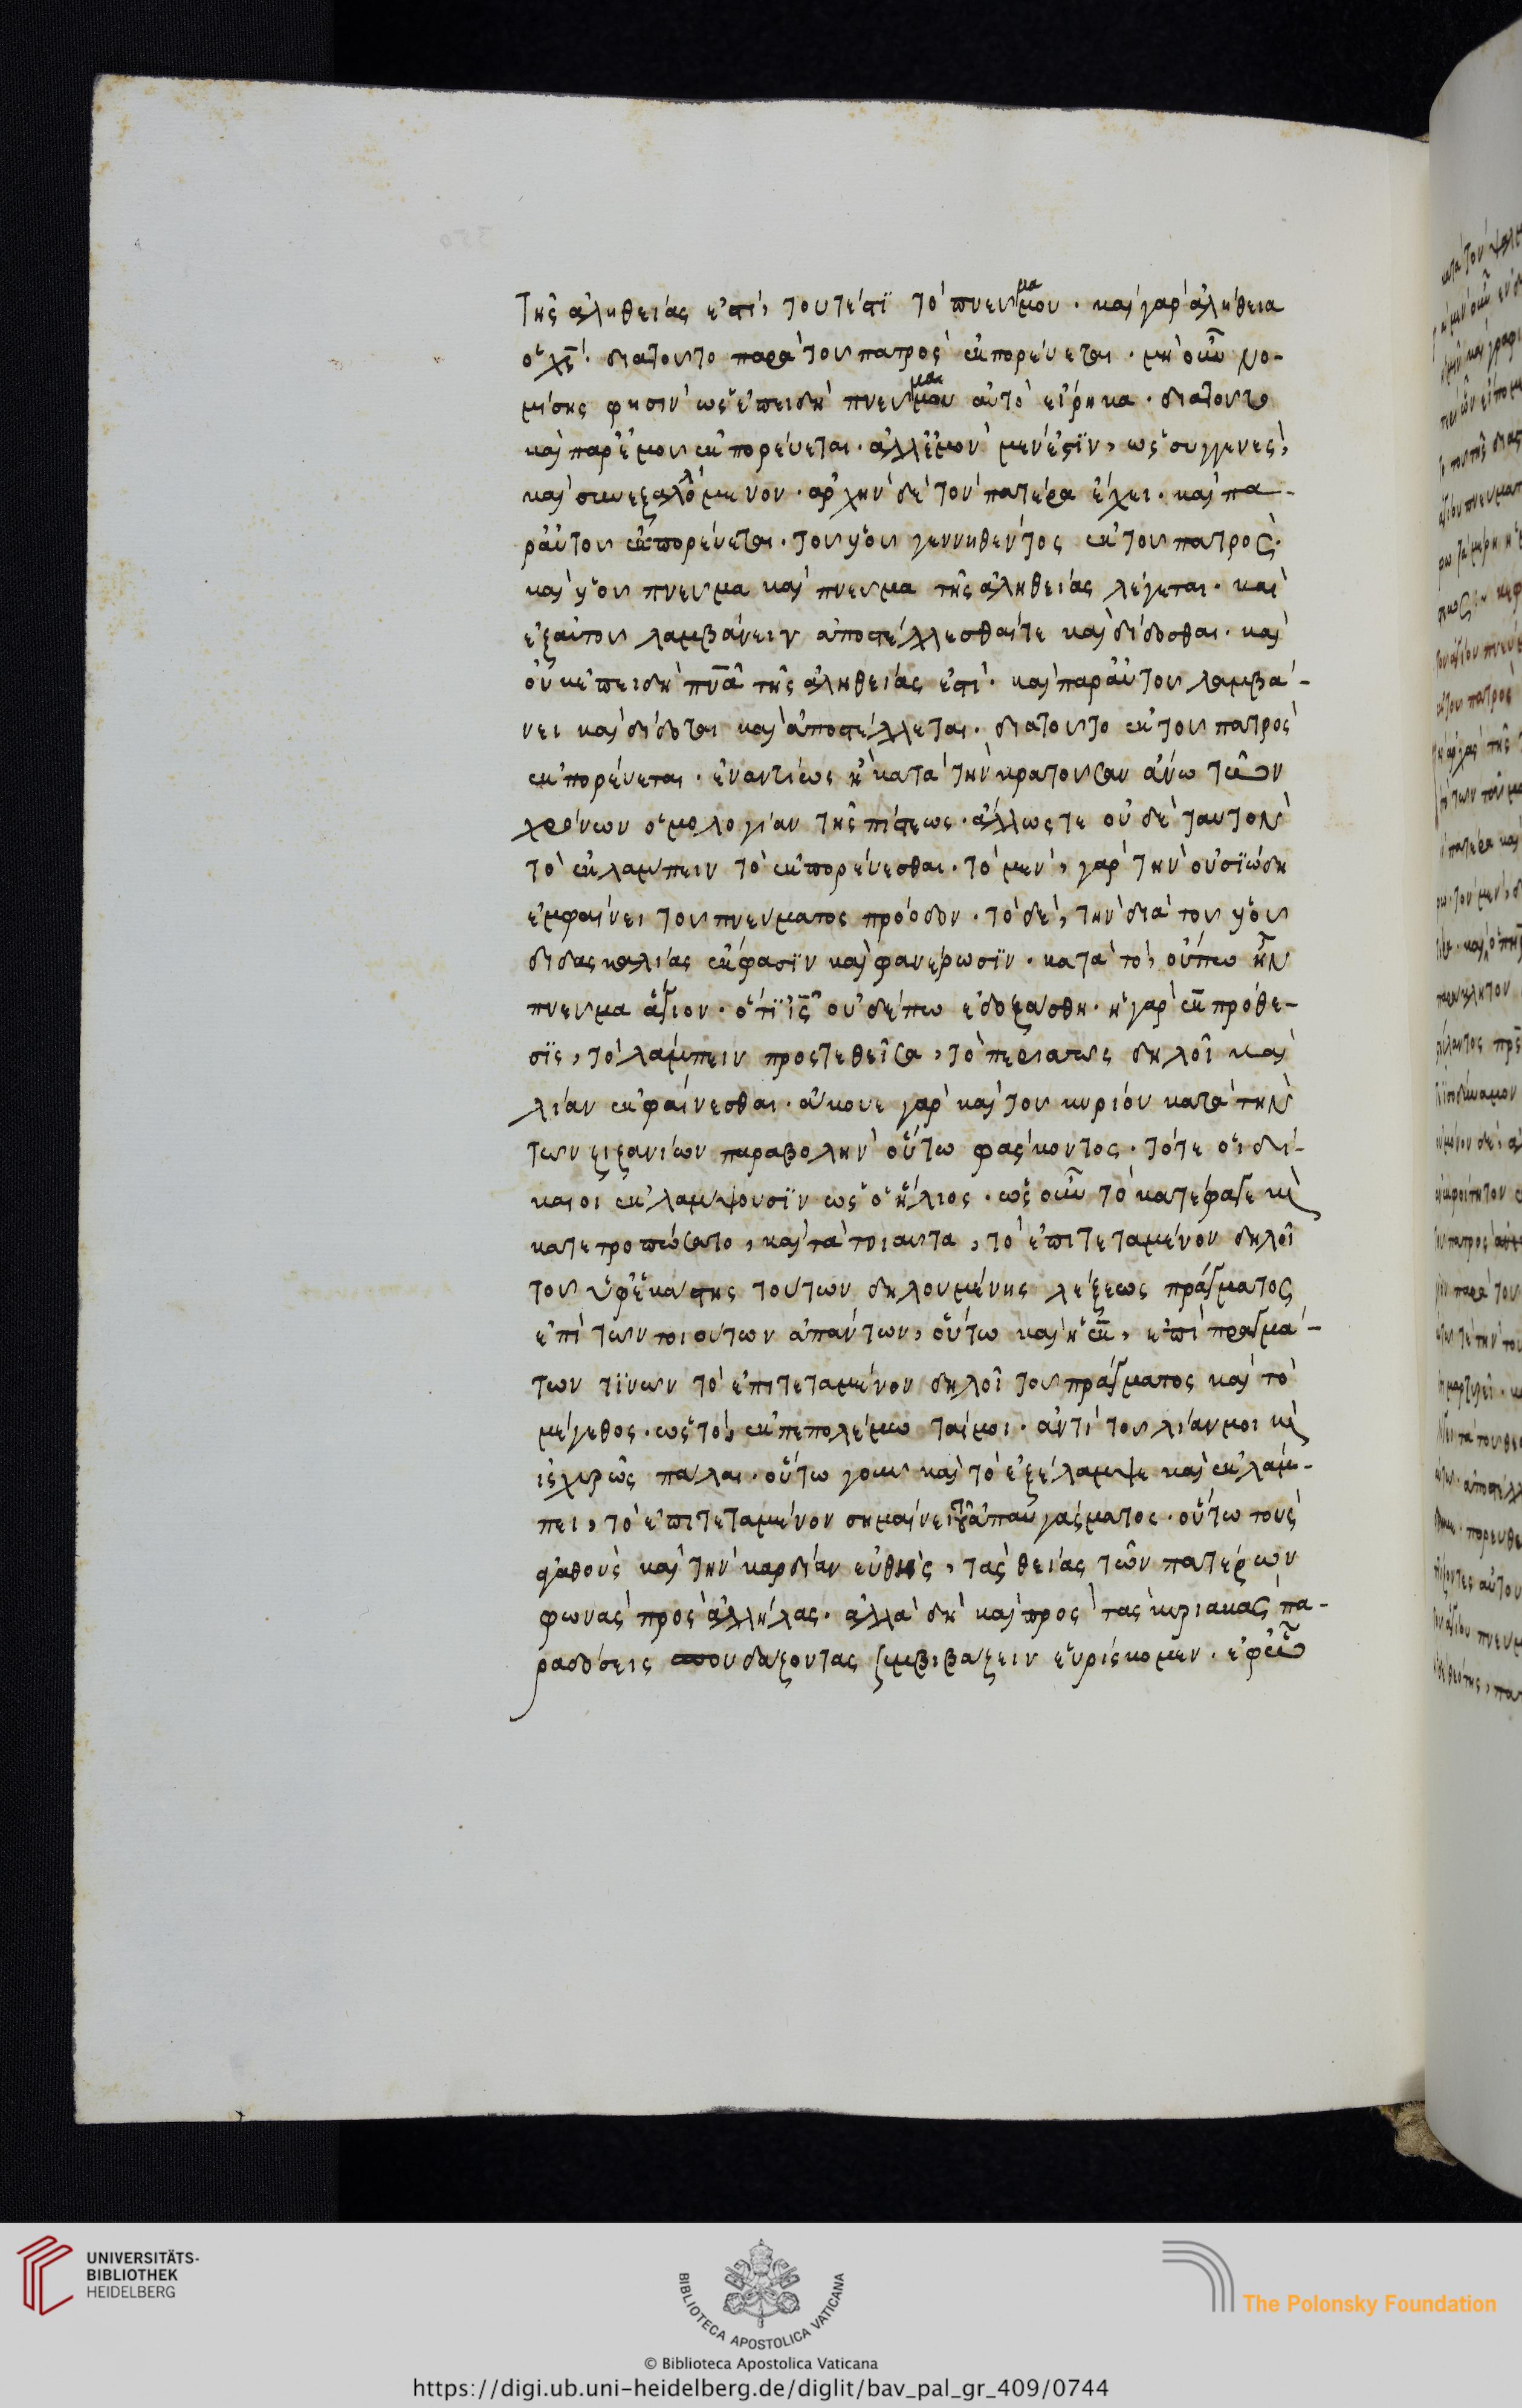 τῆς ἀληθείας ἐστὶ, τουτέστι τὸ πνεῦμα μου. καὶ γὰρ ἀλήθεια
ὁ χς. διατοῦτο παρὰ τοῦ πατρὸς ἐκπορεύεται. μὴ οὖν νο-
μίσης φησὶν ὡς ἐπειδὴ πνεῦμα μου αὐτὸ εἴρηκα. διατοῦτο
καὶ παρ ἐμοῦ ἐκπορεύεται. ἀλλ ἐμὸν μὲν ἐστϊν, ὡς συγγενὲς,
καὶ ἀρχὴν δὲ τὸν πατέρα ἔχει. καὶ πα-
ρ αὐτοῦ ἐκπορεύεται. τοῦ υἱοῦ γεννηθέντος ἐκ τοῦ πατρὸς.
καὶ υἱοῦ πνεῦμα καὶ πνεῦμα τῆς ἀληθείας λέγεται. καὶ
ἐξ αὐτοῦ λαμβάνειν ἀποστέλλεσθαί τε καὶ δίδοσθαι. καὶ
οὐκ ἐπειδὴ πνα τῆς ἀληθείας ἐστὶ. καὶ παρ αὐτοῦ λαμβά-
νει καὶ δίδοται καὶ ἀποστέλλεται. διατοῦτο ἐκ τοῦ πατρὸς
ἐκπορεύεται. ἐναντίως ἢ κατὰ τὴν κρατοῦσαν ἄνω τῶν
χρόνων ὁμολογίαν τῆς πίστεως. ἄλλως τε οὐδὲ ταυτὸν
τὸ ἐκλάμπειν τὸ ἐκπορεύεσθαι. τὸ μὲν, γὰρ τὴν οὐσϊώδη
ἐμφαίνει τοῦ πνεύματος πρόοδον. τὸ δὲ, τὴν διὰ τοῦ υἱοῦ
διδασκαλίας ἔκφασϊν καὶ φανέρωσϊν. κατὰ τὸ, οὔπω ἦν
πνεῦμα ἅγιον. ὅτϊ ις οὐδέπω ἐδοξάσθη. ἡ γὰρ ἐκ πρόθε-
σϊς, τὸ λάμπειν προστεθεῖσα, τὸ περιαττῶς δηλοῖ καὶ
λίαν ἐκφαίνεσθαι. ἄκουε γὰρ καὶ τοῦ κυρίου κατὰ τὴν
τῶν ζιζανίων παραβολὴν οὕτω φάσκοντος. τότε οἱ δί-
καιοι ἐκλάμψουσϊν ὡς ὁ ἥλιος. ὡς οὖν τὸ κατέφαγε καὶ
κατετροπώσατο, καὶ τὰ τοιαῦτα, τὸ ἐπιτεταμένον δηλοῖ
τοῦ ὑφ ἑκάστης τούτων δηλουμένης λέξεως πράγματος
ἐπὶ τῶν τοιούτων ἁπάντων, οὕτω καὶ ἡ ἐκ, ἐπὶ πραγμά-
των τϊνῶν τὸ ἐπιτεταμένον δηλοῖ τοῦ πράγματος καὶ τὸ
μέγεθος. ὡς τὸ, ἐκπεπολέμωταί μοι. ἀντὶ τοῦ λίαν μοι καὶ
ἰσχυρῶς οὕτω γοῦν καὶ τὸ ἐξέλαμψε καὶ ἐκλάμ-
πει, τὸ ἐπιτεταμένον σημαίνει τοῦ ἀπαυγάσματος. οὕτω τοὺς
ἀγαθοὺς καὶ τὴν καρδίαν εὐθεῖς, τὰς θείας τῶν πατέρων
φωνὰς πρὸς ἀλλήλας. ἀλλὰ δὴ καὶ πρὸς τὰς κυριακὰς πα-
ραδόσεις σπουδάζοντας συμβιβάζειν εὑρίσκομεν. ἐφ ὧ
UNIVERSITÄTS-
BIBLIOTHEK
HEIDELBERG
BIBLIOTECA APOSTOLICA VATICANA
The Polonsky Foundation
© Biblioteca Apostolica Vaticana
https://digi.ub.uni-heidelberg.de/diglit/bav_pal_gr_409/0744